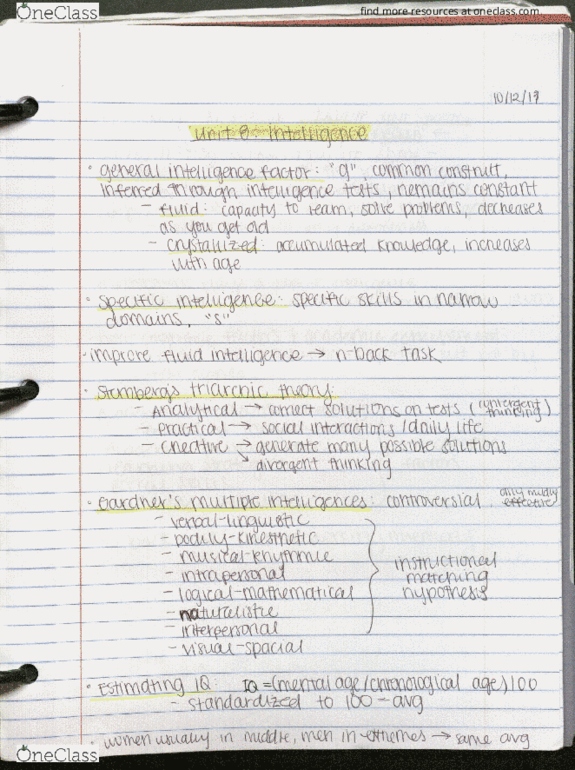 OneClass
find more resources at oneclass.com
10/12/17
Unit 8: Intelligence
• general intelligence factor: "g", common construct,
inferred through intelligence tests, remains constant
- fluid: capacity to learn, solve problems, decreases
as you get old
- crystallized: accumulated knowledge, increases
with age
• specific intelligence: specific skills in narrow
domains, "s"
• improve fluid intelligence → n-back task
• Sternberg's triarchic theory:
- Analytical → correct solutions on tests (convergent
thinking)
- Practical → social interactions / daily life
- creative → generate many possible solutions
↘ divergent thinking
• Gardner's multiple intelligences: controversial
only mildly
effective
- verbal-linguistic
- bodily-kinesthetic
- musical-rhythmic
- intrapersonal
- logical-mathematical
- naturalistic
- interpersonal
- visual-spacial
instructional
matching
hypothesis
• Estimating IQ: IQ = (mental age/chronological age)100
- standardized to 100 - avg
• women usually in middle, men in extremes → same avg
OneClass